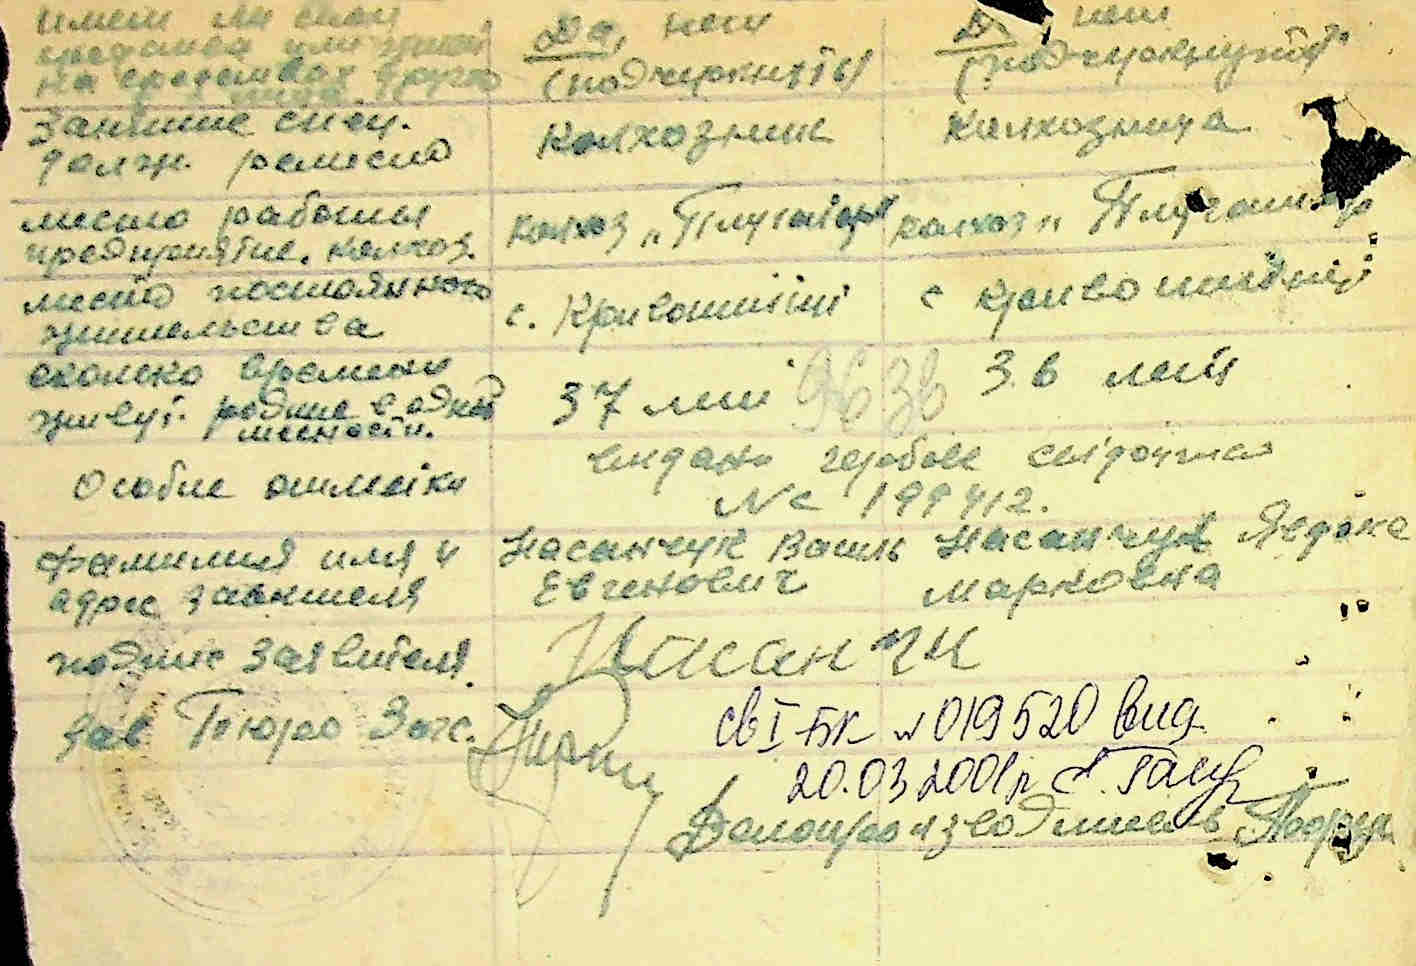 имеет ли свои
средства или живет
на средствах других
Да, нет
(подчеркнуть)
Да, нет
(подчеркнуть)
Занятие спец.
долж. ремесло
колхозник
колхозница
место работы
предприятие, колхоз.
колхоз „Плугатар"
колхоз „Плугатар
место постоянного
жительства
с. Кривошиїнці
с Кривошиїнці
сколько времени
живут. родине в одной
местности.
37 лет
96 36
3.6 лет
Особые отметки
видано гербове свідоцтво
№ 199412.
Фамилия имя и
адрес заявителя
Насанчук Василь
Евгенович
Насанчук Явдоха
Марковна
подпис заявителя.
Насанчук
Зав Бюро Загс.
св І-БК №019520 вид.
20.03.2001р
Делопроизводитель